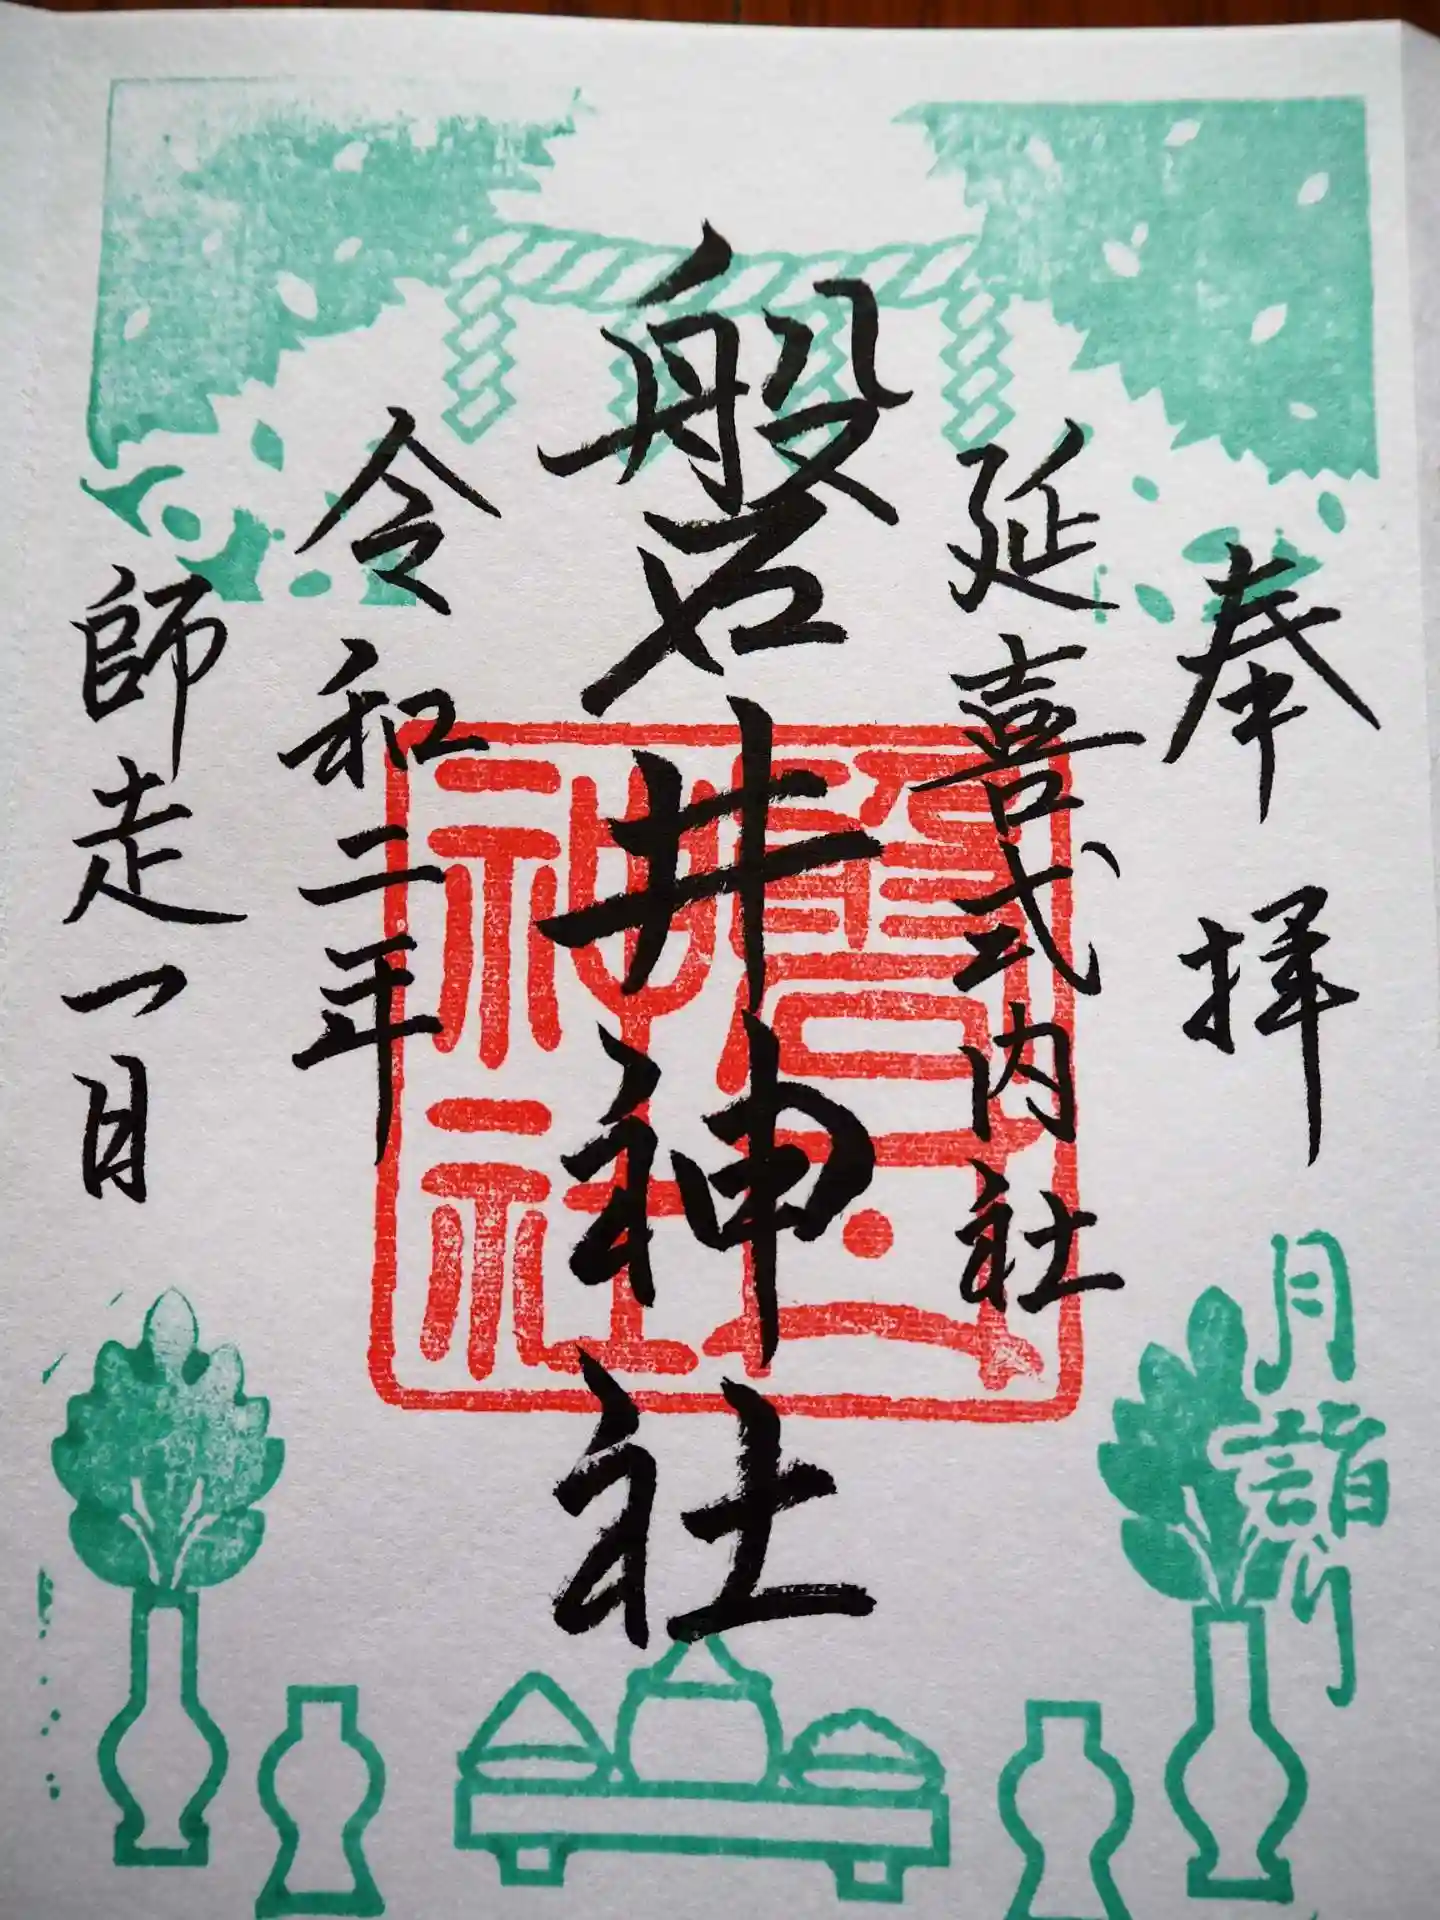 奉拝
月詣り
延喜式内社
磐井神社
令和二年
師走一日
磐井
神社